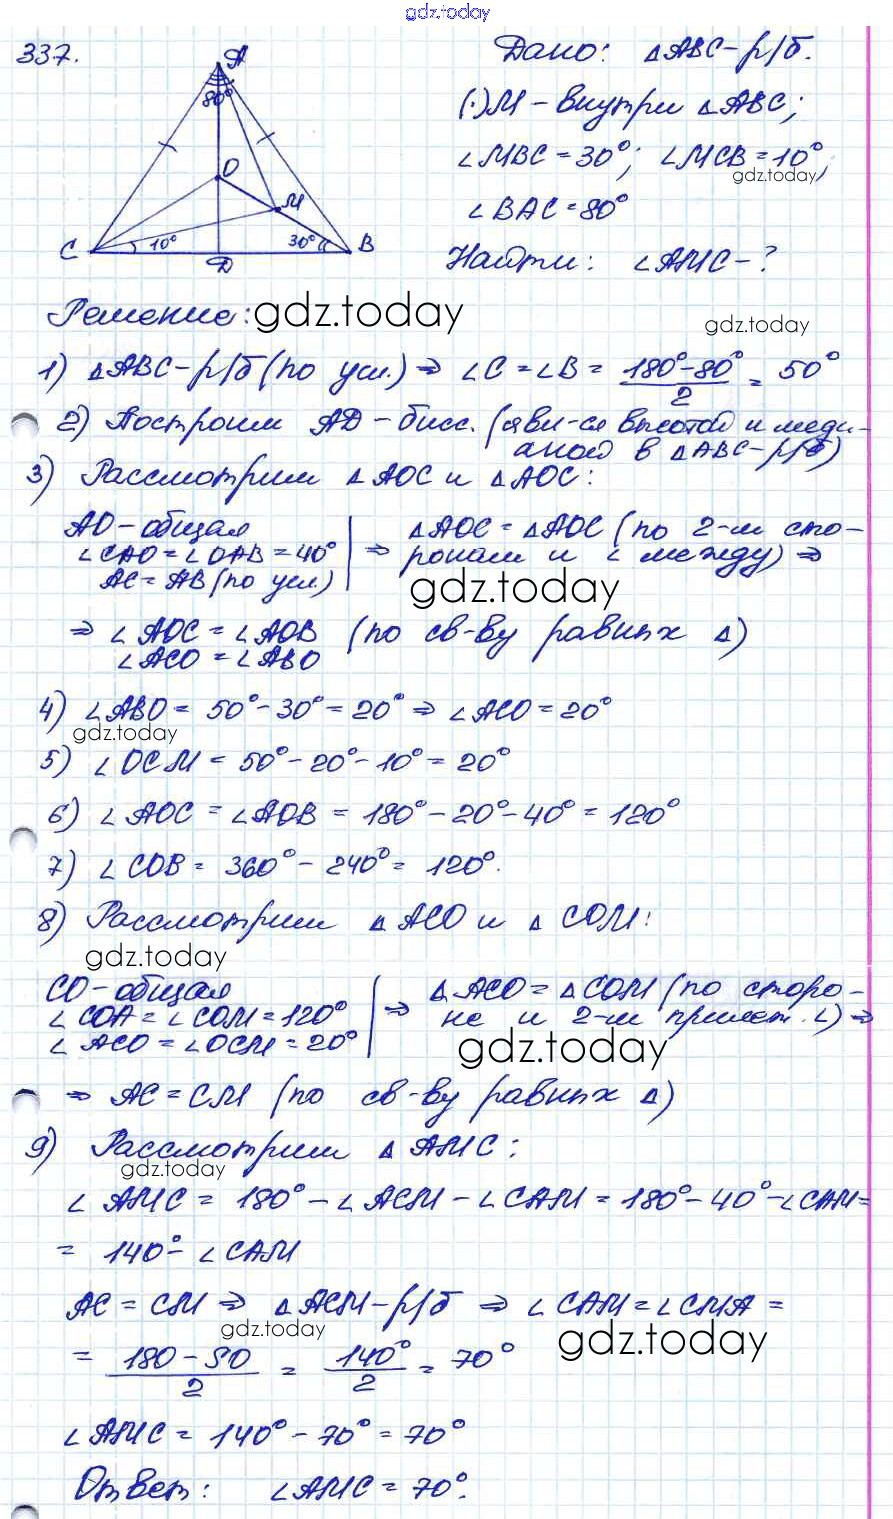 gdz.today
337.
Дано: △ABC-р/б.
(·)M - внутри △ABC;
∠MBC = 30°; ∠MCB = 10°,
gdz.today
∠BAC = 80°
Найти: ∠AMC - ?
A
80°
O
M
C
10°
30°
B
D
Решение: gdz.today
gdz.today
1) △ABC-р/б (по усл.) ⇒ ∠C = ∠B = (180°-80°)/2 = 50°
2) Построим AD - бисс. (яви-ся высотой и меди-
аной в △ABC-р/б)
3) Рассмотрим △AOC и △AOC:
AO - общая
∠CAO = ∠OAB = 40°
AC = AB (по усл)
⇒ △AOC = △AOC (по 2-м сто-
ронам и ∠ между) ⇒
gdz.today
⇒ ∠AOC = ∠AOB (по св-ву равных △)
∠ACO = ∠ABO
4) ∠ABO = 50° - 30° = 20° ⇒ ∠ACO = 20°
gdz.today
5) ∠OCM = 50° - 20° - 10° = 20°
6) ∠AOC = ∠AOB = 180° - 20° - 40° = 120°
7) ∠COB = 360° - 240° = 120°.
8) Рассмотрим △ACO и △COM:
gdz.today
CO - общая
∠COA = ∠COM = 120°
∠ACO = ∠OCM = 20°
⇒ △ACO = △COM (по сторо-
не и 2-м прилеж. ∠) ⇒
gdz.today
⇒ AC = CM (по св-ву равных △)
9) Рассмотрим △AMC:
gdz.today
∠AMC = 180° - ∠ACM - ∠CAM = 180° - 40° - ∠CAM =
= 140° - ∠CAM
AC = CM ⇒ △ACM-р/б ⇒ ∠CAM = ∠CMA =
gdz.today
gdz.today
= (180 - 50)/2 = 140°/2 = 70°
∠AMC = 140° - 70° = 70°
Ответ: ∠AMC = 70°.